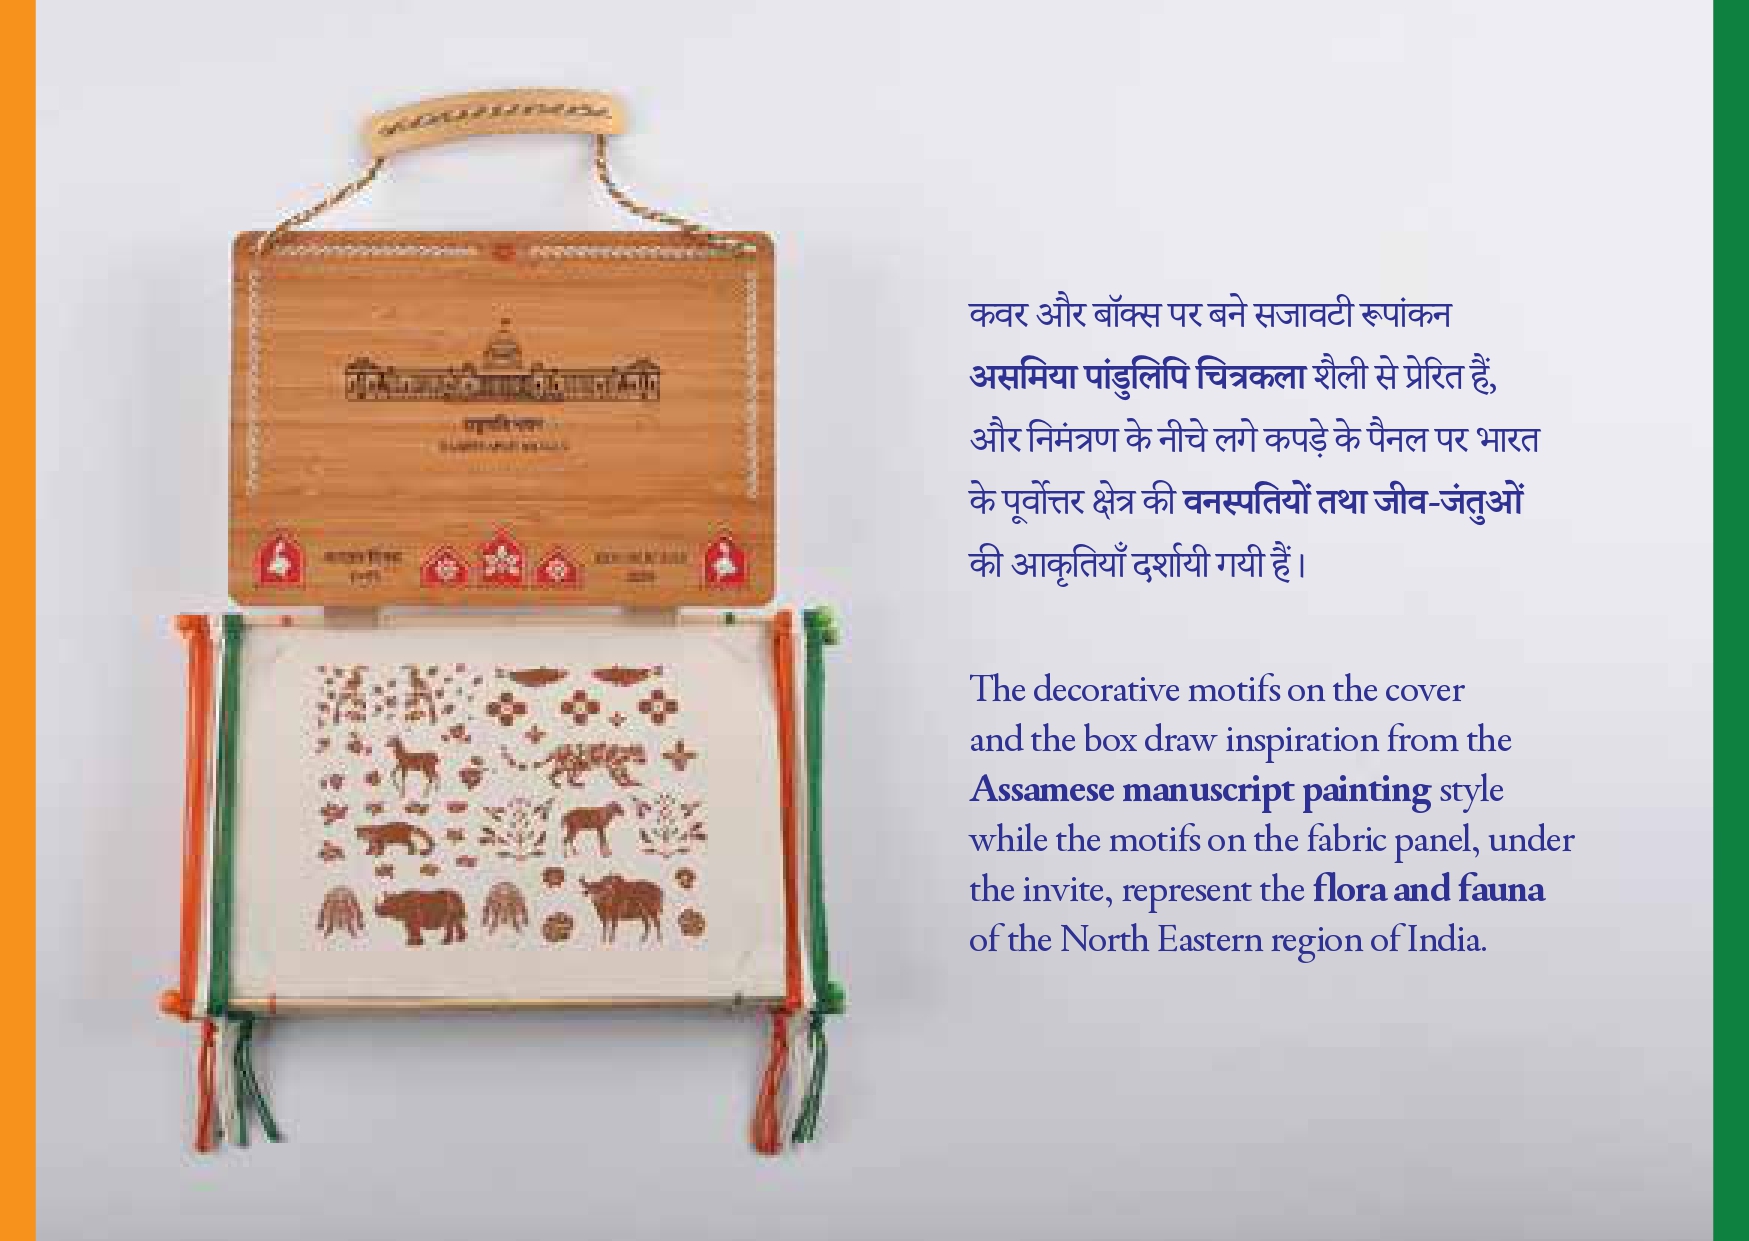 राष्ट्रपति भवन
कवर और बॉक्स पर बने सजावटी रूपांकन
असमिया पांडुलिपि चित्रकला शैली से प्रेरित हैं,
और निमंत्रण के नीचे लगे कपड़े के पैनल पर भारत
के पूर्वोत्तर क्षेत्र की वनस्पतियों तथा जीव-जंतुओं
की आकृतियाँ दर्शायी गयी हैं।
The decorative motifs on the cover
and the box draw inspiration from the
Assamese manuscript painting style
while the motifs on the fabric panel, under
the invite, represent the flora and fauna
of the North Eastern region of India.